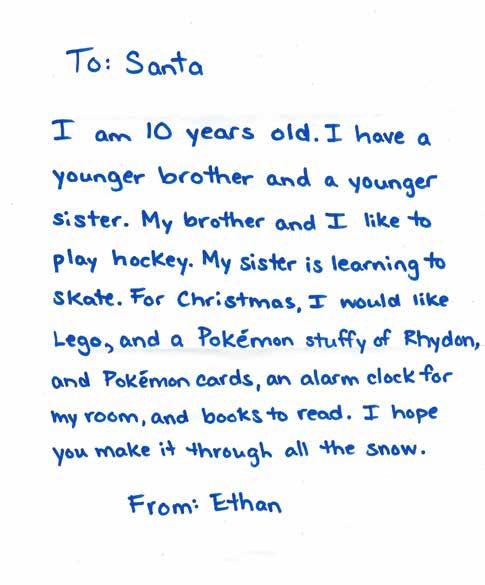 To: Santa
I am 10 years old. I have a
younger brother and a younger
sister. My brother and I like to
play hockey. My sister is learning to
skate. For Christmas, I would like
Lego, and a Pokémon stuffy of Rhydon,
and Pokémon cards, an alarm clock for
my room, and books to read. I hope
you make it through all the snow.
From: Ethan